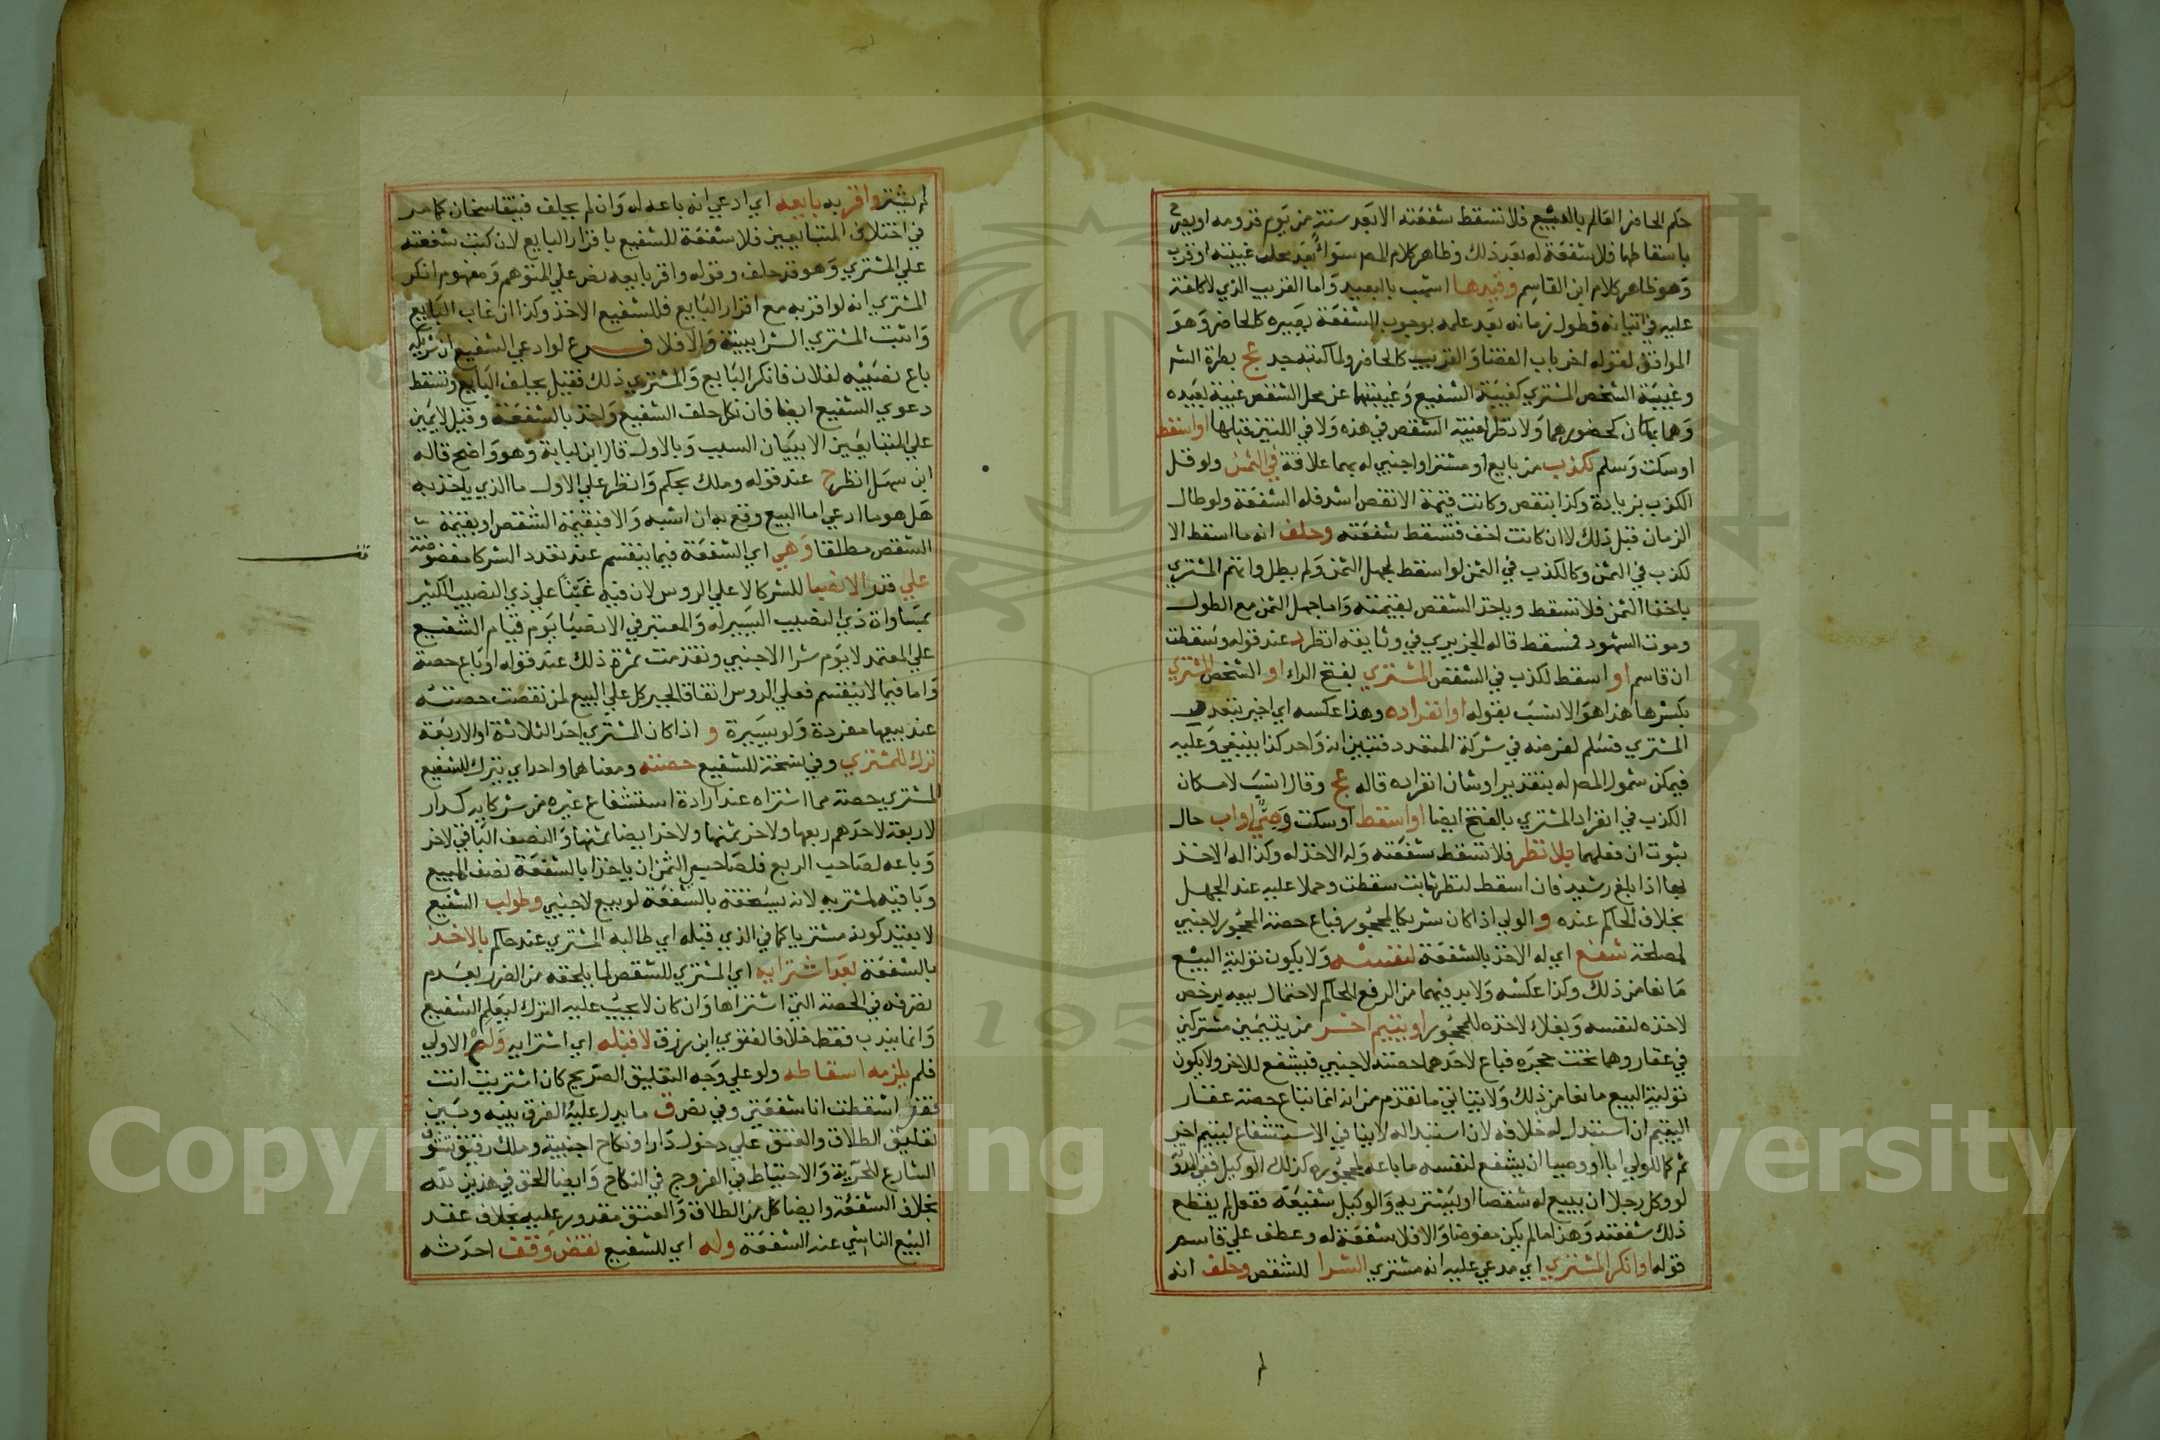 حكم الحاضر العالم بالمبيع فلا تسقط شفعته الا بعد سنة من يوم قدومه او يصرح
باسقاطها فلا شفعة له بعد ذلك وظاهر كلام المص سواء بعد محل غيبته او قرب
وهو ظاهر كلام ابن القاسم وقيدها اشهب بالبعيد واما القريب الذي لا كلفة
عليه في اتيانه فطول زمانه بعد علمه بوجوب الشفعة يصيره كالحاضر وهو
الموافق لقوله اخر باب القضا والقريب كالحاضر ولما كتبه جد عج بطرة الشر
وغيبة الشخص المشتري كغيبة الشفيع وغيبتهما عن محل الشقص غيبة بعيده
وهما بمكان كحضورهما ولا نظر لغيبة الشقص في هذه ولا في اللتين قبلها او اسقط
او سكت وسلم لكذب من بايع او مشتر او اجنبي له بهما علاقة في الثمن ولو قل
الكذب بزيادة وكذا بنقص وكانت قيمة الانقص اشد فله الشفعة ولو طال
الزمان قبل ذلك لا ان كانت اخف فتسقط شفعته وحلف انه ما اسقط الا
لكذب في الثمن وكالكذب في الثمن لو اسقط لجهل الثمن ولم يطل واتهم المشتري
باخفا الثمن فلا تسقط وياخذ الشقص بقيمته واما جهل الثمن مع الطول
وموت الشهود فمسقط قاله الجزيري في وثايقه انظر د عند قوله وسقطت
ان قاسم او اسقط لكذب في الشقص المشتري بفتح الراء او الشخص المشتري
بكسرها هذا هو الانسب بقوله او انفراده وهذا عكسه اي اخبر بتعدد
المشتري فسلم لغرضه في شركة المتعدد فتبين انه واحد كذا ينبغي وعليه
فيمكن شمول المص له بتقدير او شان انفراده قاله عج وقال انسب لامكان
الكذب في انفراد المشتري بالفتح ايضا او اسقط او سكت وصي او اب حال
ثبوت ان فعلهما بلا نظر فلا تسقط شفعته وله الاخذ له وكذا له الاخذ
بها اذا بلغ رشيد فان اسقط لنظر ثابت سقطت وحملا عليه عند الجهل
بخلاف الحاكم عنده و الولي اذا كان شريكا لمحجور فباع حصة المحجور لاجنبي
لمصلحة شفع اي له الاخذ بالشفعة لنفسه ولا يكون توليه البيع
مانعا من ذلك وكذا عكسه ولا بد فيهما من الرفع للحاكم لاحتمال بيعه برخص
لاخذه لنفسه وبغلاء لاخذه للمحجور او ليتيم اخر من يتيمين مشتركين
في عقار وهما تحت حجره فباع لاحدهما حصته لاجنبي فيشفع للاخر ولا يكون
توليه البيع مانعا من ذلك ولا ينافي ما تقدم من انه انما تباع حصة عقار
اليتيم ان استبدل له خلافه لان استبداله لا ينافي الاستشفاع ليتيم اخر
ثم كما للولي ابا او وصيا ان يشفع لنفسه ما باعه لمحجوره كذلك الوكيل ففي المدونة
لو وكل رجلا ان يبيع له شقصا او يشتريه والوكيل شفيعه ففعل لم يقطع
ذلك شفعته وهذا ما لم يكن مفوضا والا فلا شفعة له وعطف على قاسم
قوله او انكر المشتري اي مدعي عليه انه مشتري الشرا للشقص وحلف انه
لم
لم يشتر واقر به بايعه اي ادعي انه باعه له وان لم يحلف فيتفاسخان كما مر
في اختلاف المتبايعين فلا شفعة للشفيع باقرار البايع لان كتب شفعته
علي المشتري وهو قد حلف وقوله واقر بايعه نص علي المتوهم ومفهوم انكر
المشتري انه لو اقر به مع اقرار البايع فللشفيع الاخذ وكذا ان غاب البايع
واثبت المشتري الشرا ببينة والا فلا فرع لو ادعي الشفيع ان شريكه
باع نصيبه لفلان فانكر البايع والمشتري ذلك فقيل يحلف البايع وتسقط
دعوي الشفيع ايضا فان نكل حلف الشفيع واخذ بالشفعة وقيل لا يمين
علي المتبايعين الا ببيان السبب وبالاول قال ابن لبابة وهو واضح قاله
ابن سهل انظر ح عند قوله وملك بحكم وانظر علي الاول ما الذي ياخذ به
هل هو ما ادعي اما البيع وقع به ان اشبه والا فبقيمة الشقص او بقيمة
الشقص مطلقا وهي اي الشفعة فيما ينقسم عند تعدد الشركا مفضوضة
علي قدر الانصبا للشركا لا علي الروس لان فيه غبنا علي ذي النصيب الكثير
بمساواة ذي النصيب اليسير له والمعتبر في الانصبا يوم قيام الشفيع
علي المعتمد لا يوم شرا الاجنبي وتقدمت ثمرة ذلك عند قوله او باع حصة
واما فيما لا ينقسم فعلي الروس اتفاقا لجبر كل علي البيع لمن نقصت حصته
عند بيعها مفردة ولو يسيرة و اذا كان المشتري احد الثلاثة او الاربعة
ترك للمشتري وفي نسخة للشفيع حصته ومعناهما واحد اي يترك الشفيع
للمشتري حصته مما اشتراه عند ارادة استشفاع غيره من شركايه كدار
لاربعة لاحدهم ربعها ولاخر ثمنها ولاخر ايضا ثمنها والنصف الباقي لاخر
وباعه لصاحب الربع فلصاحبي الثمن ان ياخذا بالشفعة نصف المبيع
وباقيه لمشتريه لانه يستحقه بالشفعة لو بيع لاجنبي وطولب الشفيع
لا بقيد كونه مشتريا كما في الذي قبله اي طالبه المشتري عند حاكم بالاخذ
بالشفعة بعد اشترايه اي المشتري للشقص لما يلحقه من الضرر بعدم
تصرفه في الحصة التي اشتراها وان كان لا يجب عليه الترك ليعلم الشفيع
وانما يندب فقط خلافا لفتوي ابن رزق لا قبله اي اشترايه ولم الاولي
فلم يلزمه اسقاطه ولو علي وجه التعليق الصريح كان اشتريت انت
فقد اسقطت انا شفعتي وفي نص ق ما يدل عليه الفرق بينه وبين
تعليق الطلاق والعتق علي دخول دار او نكاح اجنبية وملك رقيق تشوف
الشارع للحرية والاحتياط في الفروج في النكاح وايضا الحق في هذين لله
بخلاف الشفعة وايضا كل من الطلاق والعتق مقدور عليه بخلاف عقد
البيع الناشي عنه الشفعة وله اي للشفيع نقض وقف احدثه